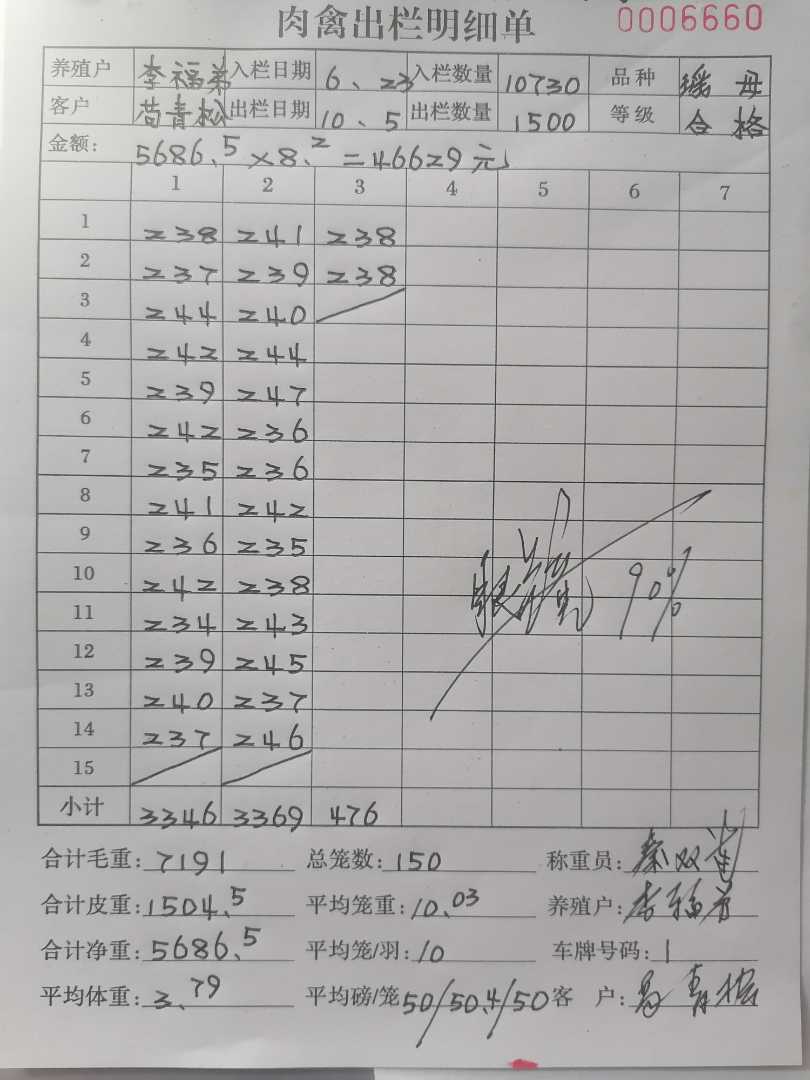 肉禽出栏明细单 0006660
养殖户 李福弟 入栏日期 6、23 入栏数量 10730 品种 瑶母
客户 苟青松 出栏日期 10、5 出栏数量 1500 等级 合格
金额: 5686.5×8.2=46629元
1 2 3 4 5 6 7
1 238 241 238
2 237 239 238
3 244 240
4 242 244
5 239 247
6 242 236
7 235 236
8 241 242
9 236 235
10 242 238
11 234 243
12 239 245
13 240 237
14 237 246
15
90%
小计 3346 3369 476
合计毛重: 7191 总笼数: 150 称重员: 秦双
合计皮重: 1504.5 平均笼重: 10.03 养殖户: 李福弟
合计净重: 5686.5 平均笼/羽: 10 车牌号码: 1
平均体重: 3.79 平均磅/笼 50/50.4/50 客 户: 青松